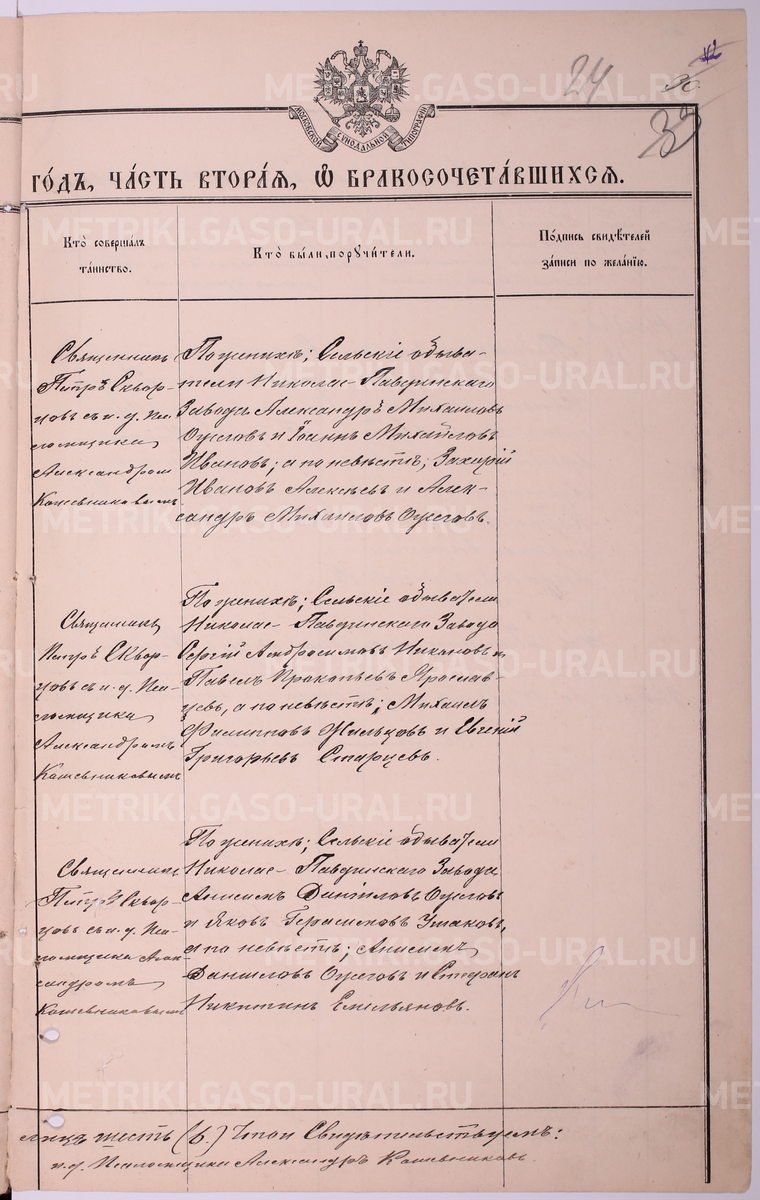 24
МОСКОВСКОЙ СѴНОДАЛЬНОЙ ТИПОГРАФІИ
ГО́ДЪ, ЧА́СТЬ ВТОРА́Я, Ѡ҆ БРАКОСОЧЕТА́ВШИХСЯ.
Кто̀ соверша́лъ
та́инство.
Кто̀ бы́ли поручи́тели.
По́дпись свидѣ́телей
за́писи по жела́нїю.
Священникъ
Петръ Сквор-
цовъ съ и. д. Пса-
ломщика
Александром
Кожевниковымъ
По женихѣ; Сельскіе обыва-
тели Николае-Павдинскаго
Завода Александръ Михаиловъ
Ожеговъ и Іоаннъ Михайловъ
Ивановъ; а по невѣстѣ; Захарій
Ивановъ Алексѣевъ и Алек-
сандръ Михаиловъ Ожеговъ.
Священникъ
Петръ Сквор-
цовъ съ и. д. Пса-
ломщика
Александромъ
Кожевниковымъ
По женихѣ; Сельскіе обыватели
Николае-Павдинскаго Завода
Сергій Андросимовъ Никоновъ и
Павелъ Прокопьевъ Ярослав-
цевъ, а по невѣстѣ; Михаилъ
Филипповъ Жильцовъ и Евгеній
Григорьевъ Старцевъ.
Священникъ
Петръ Сквор-
цовъ съ и. д. Пса-
ломщика Алек-
сандромъ
Кожевниковымъ
По женихѣ; Сельскіе обыватели
Николае-Павдинскаго Завода
Анисимъ Даніиловъ Ожеговъ
и Яковъ Герасимовъ Ушаковъ,
а по невѣстѣ; Анисимъ
Даниловъ Ожеговъ и Стефанъ
Никитинъ Емельяновъ.
лицъ шесть (6.) Что и Свидѣтельствуемъ:
и. д. Псаломщика Александръ Кожевниковъ.
METRIKI.GASO-URAL.RU